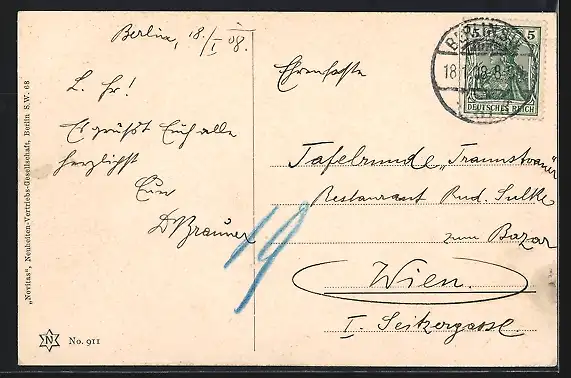 Berlin, 18./I 08.
L. Fr!
Es grüßt Euch alle
herzlichst
Euer
D Brauner
"Novitas", Neuheiten-Vertriebs-Gesellschaft, Berlin S.W. 68
N No. 911
BERLIN
18.1.08
5
DEUTSCHES REICH
Tafelrunde
Restaurant Rud.
zum Bazar
Wien.
I. Seitzergasse
19